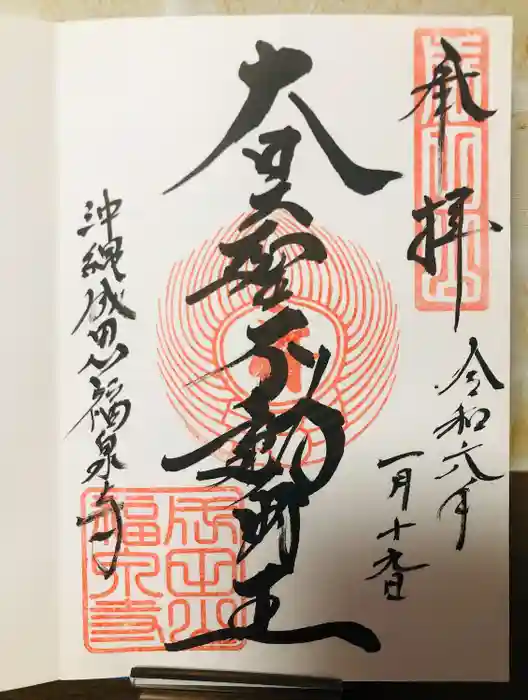 奉拝
令和六年
一月十九日
大聖不動明王
沖縄成田山福泉寺